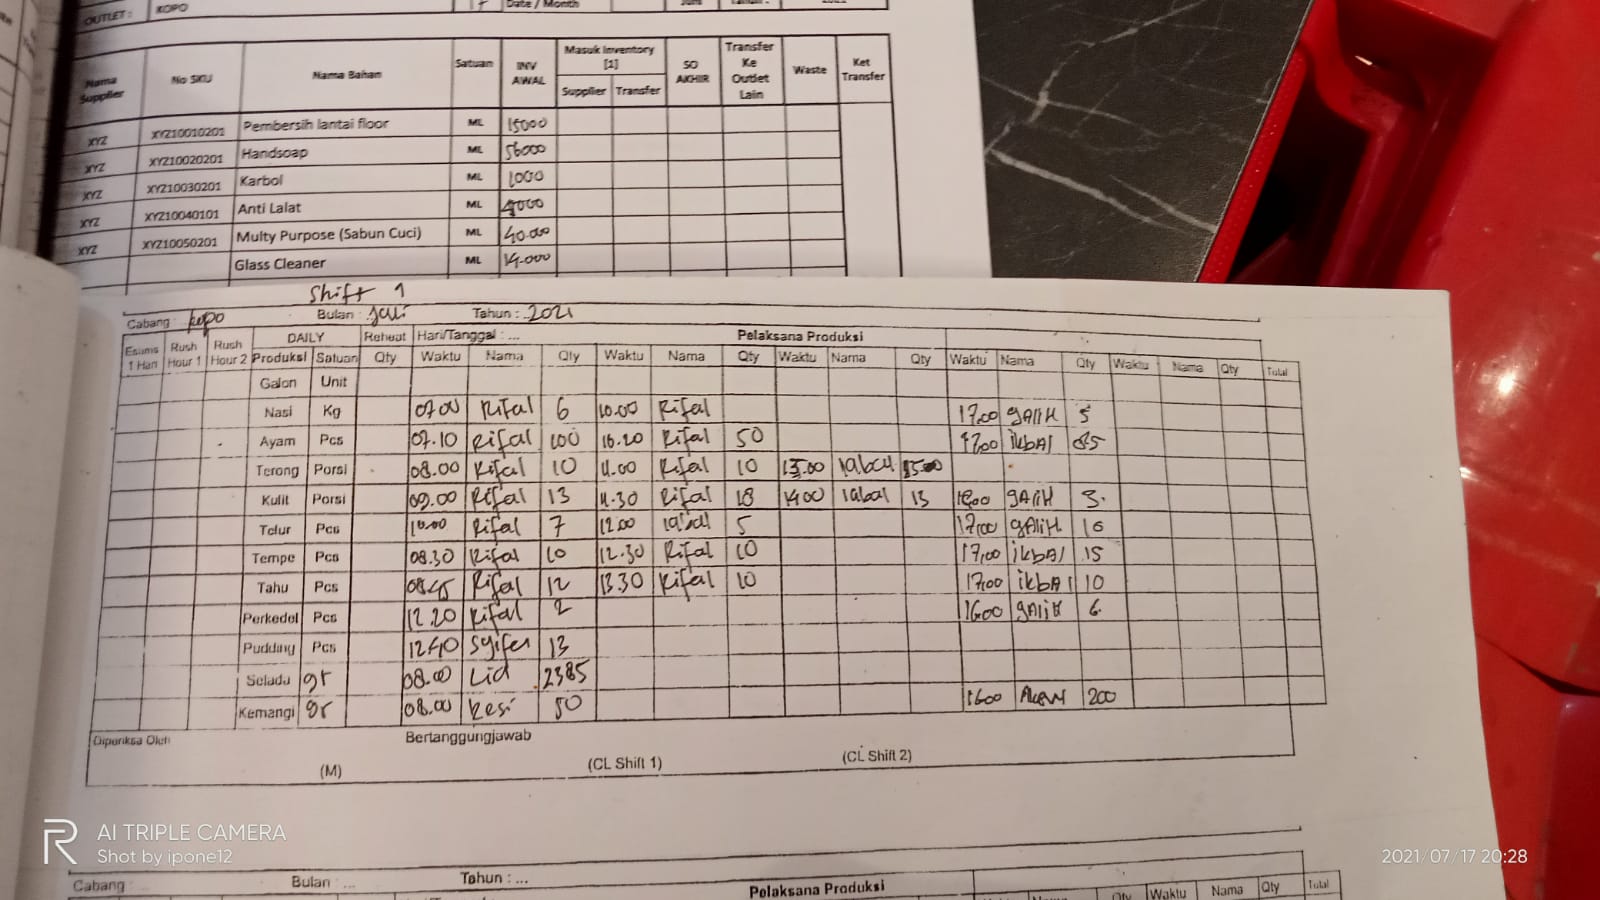 OUTLET : KOPO Date / Month
Nama Supplier No SKU Nama Bahan Satuan INV AWAL Masuk Inventory [1] Supplier Transfer SO AKHIR Transfer Ke Outlet Lain Waste Ket Transfer
XYZ XYZ10010201 Pembersih lantai floor ML 15000
XYZ XYZ10020201 Handsoap ML 56000
XYZ XYZ10030201 Karbol ML 1000
XYZ XYZ10040101 Anti Lalat ML
XYZ XYZ10050201 Multy Purpose (Sabun Cuci) ML 40.000
Glass Cleaner ML 14.000
Shift 1
Cabang : kopo Bulan : Juli Tahun : 2021
Rush Hour 1 Rush Hour 2 DAILY Reheat Hari/Tanggal : ... Pelaksana Produksi
1 Hari Produksi Satuan Qty Waktu Nama Qty Waktu Nama Qty Waktu Nama Qty Waktu Nama Qty Waktu Nama Qty Total
Galon Unit
Nasi Kg 07.00 Rifal 6 10.00 Rifal 17.00 gAliH 5
Ayam Pcs 07.10 Rifal 100 Rifal 50 ikbAl
Terong Porsi 08.00 Rifal 10 11.00 Rifal 10
Kulit Porsi 09.00 Rifal 13 11.30 Rifal 18 1400 13 gAliH 3.
Telur Pcs 10.00 Rifal 7 12.00 5 17,00 gAliH 10
Tempe Pcs 08.30 Rifal 10 12.30 Rifal 10 17,00 ikbAl 15
Tahu Pcs 08.45 Rifal 12 13.30 Rifal 10 17.00 ikbAl 10
Perkedel Pcs 12.20 Rifal 2 1600 gAliH 6
Pudding Pcs 12.40 13
Selada gr 08.00 2385
Kemangi gr 08.00 Resi 50 1600 200
Diperiksa Oleh Bertanggungjawab
(M) (CL Shift 1) (CL Shift 2)
AI TRIPLE CAMERA
Shot by ipone12
2021/07/17 20:28
Cabang : Bulan : ... Tahun : ... Pelaksana Produksi
Qty Waktu Nama Qty Total